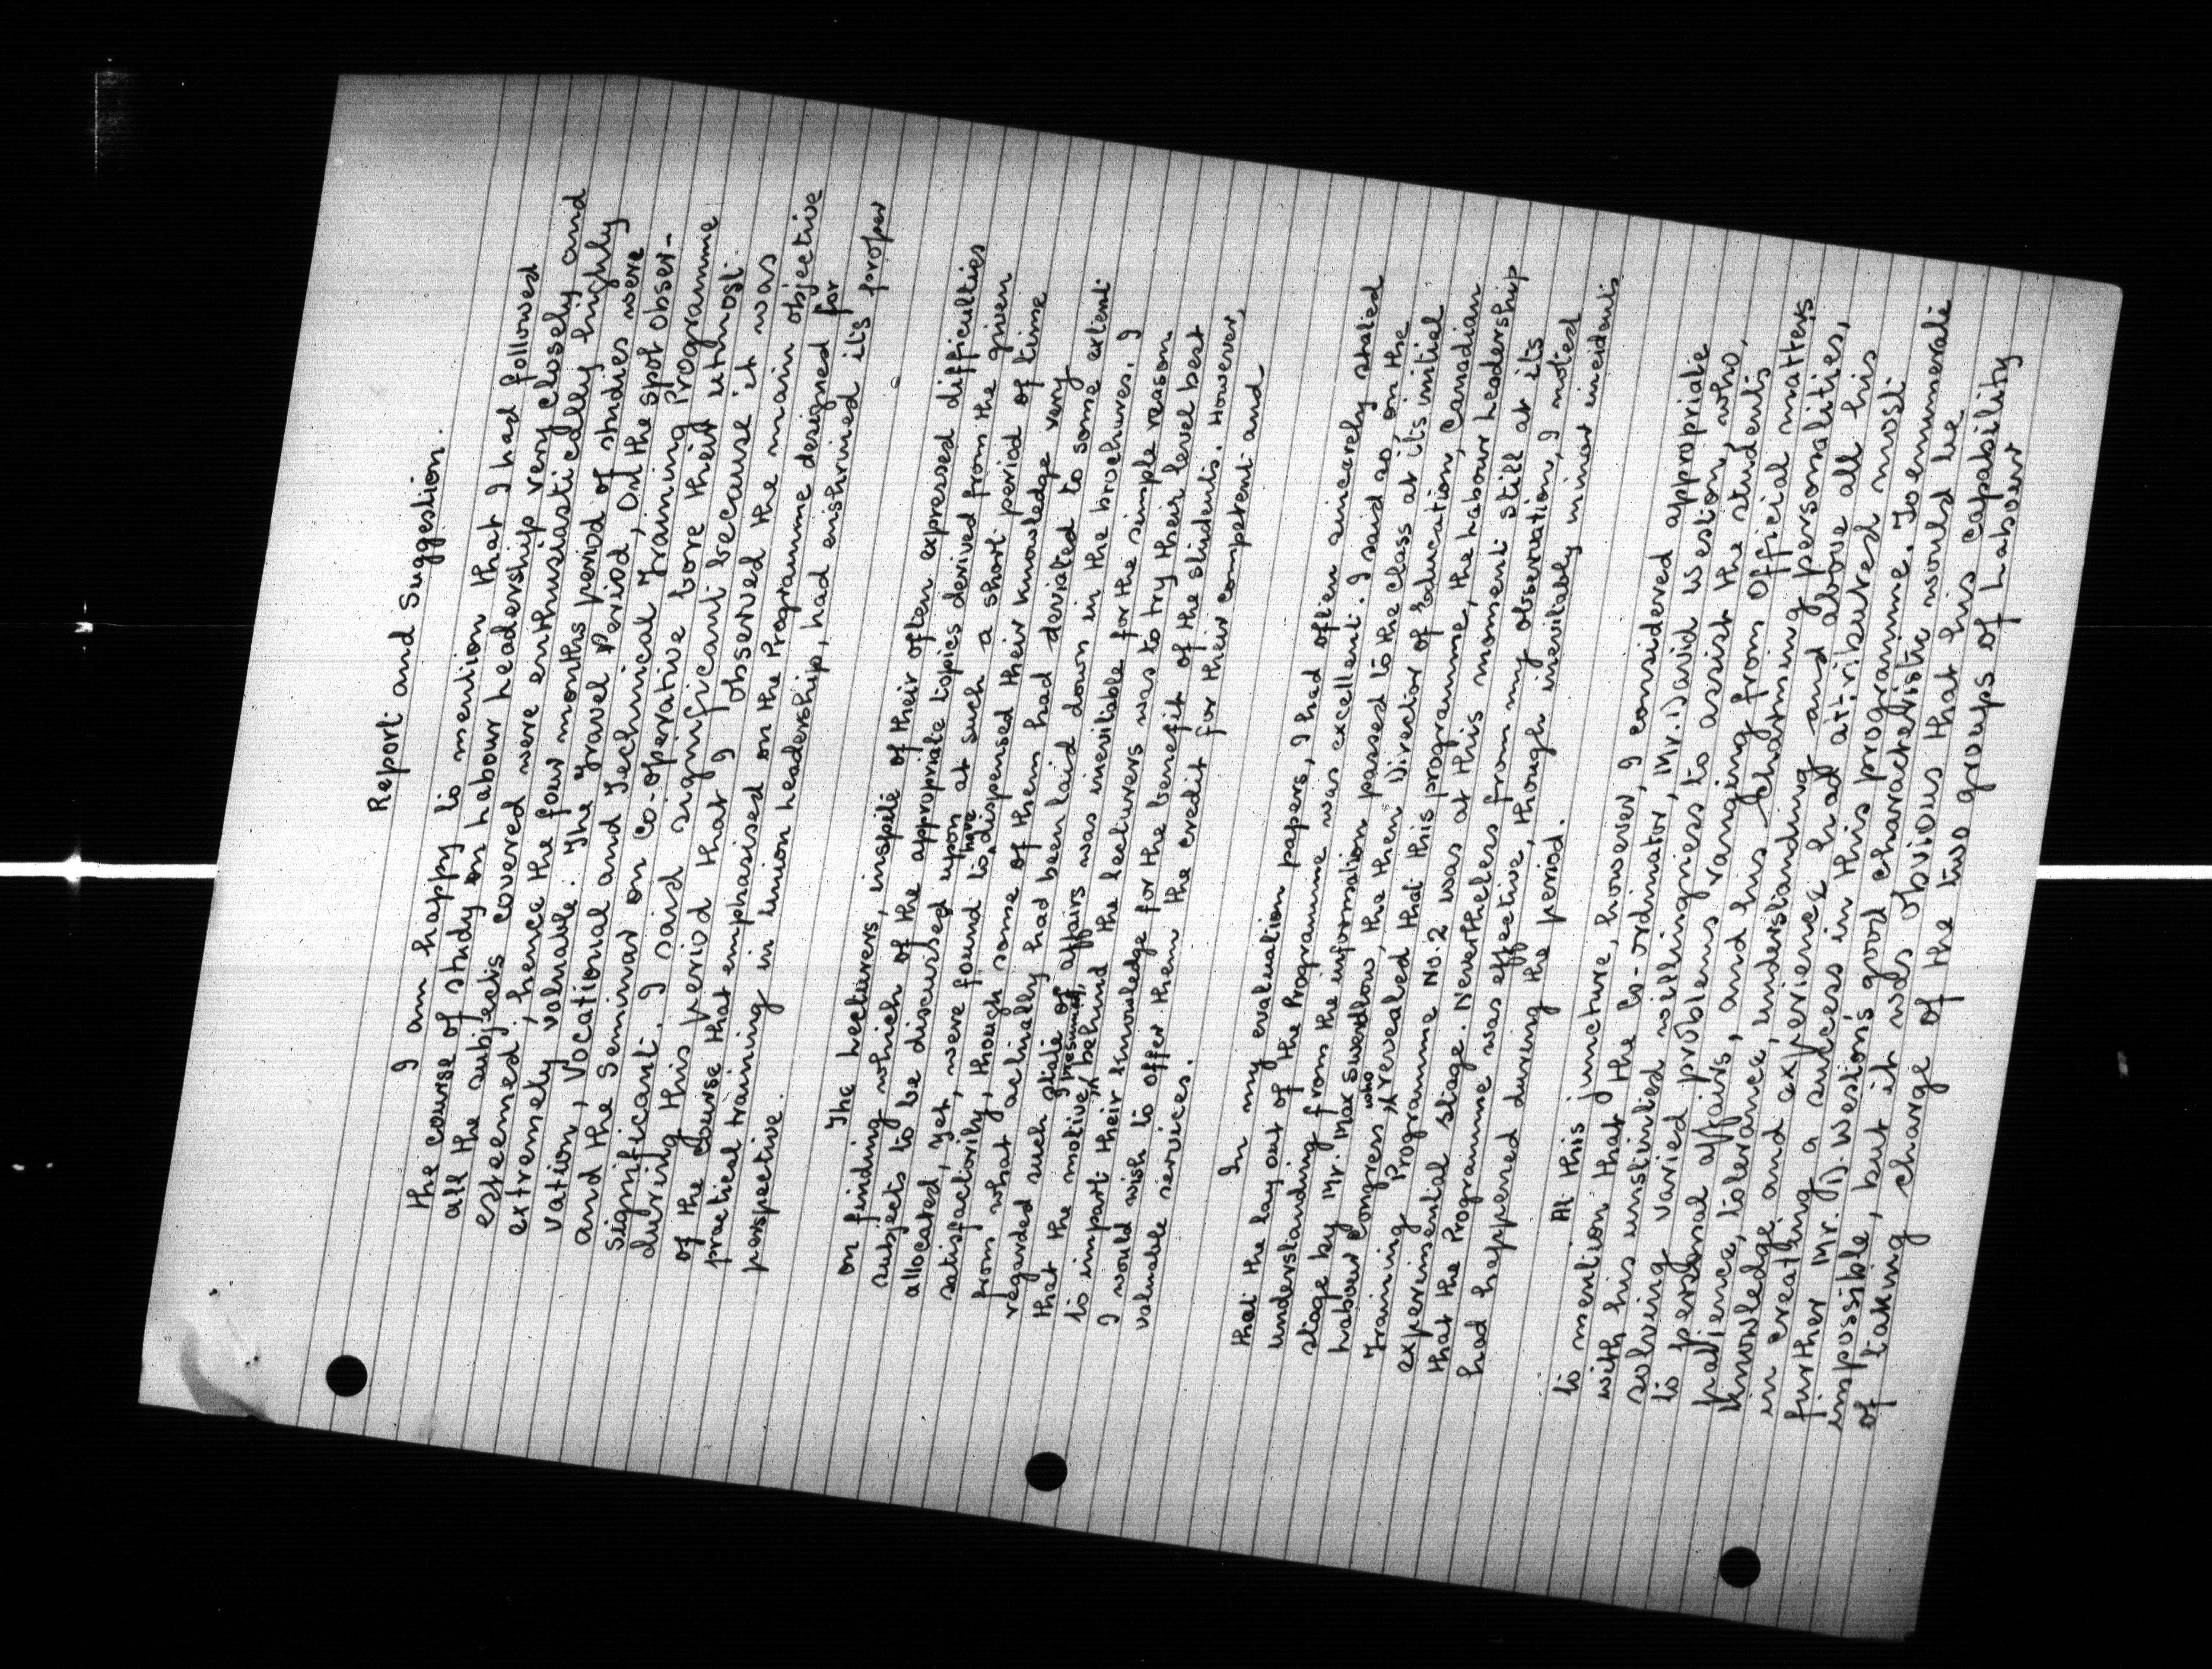 Report and Suggestion.
I am happy to mention that I had followed
the course of study on Labour Leadership very closely and
all the subjects covered were enthusiastically highly
esteemed, hence the four months period of studies were
extremely valuable. The Travel Period, On the spot obser-
vation, Vocational and Technical Training Programme
and the Seminar on Co-operative bore their uthmost
significant. I said significant because it was
during this period that I observed the main objective
of the course that emphasised on the Programme designed for
practical training in Union Leadership, had enshrined its proper
perspective.
The Lecturers, inspite of their often expressed difficulties
on finding which of the appropriate topics derived from the given
subjects to be discussed upon at such a short period of time
allocated, yet, were found to have dispensed their knowledge very
satisfactorily, though some of them had deviated to some extent
from what actually had been laid down in the brochures. I
regarded such state of affairs was inevitable for the simple reason
that the motive, I presumed, behind the lecturers was to try their level best
to impart their knowledge for the benefit of the students. However,
I would wish to offer them the credit for their competent and
valuable services.
In my evaluation papers, I had often sincerely stated
that the lay out of the Programme was excellent. I said so on the
understanding from the information passed to the class at its initial
stage by Mr. Max Swerdlow, the then Director of Education, Canadian
Labour Congress who revealed that this programme, the Labour Leadership
Training Programme No. 2 was at this moment still at its
experimental stage. Nevertheless from my observation, I noted
that the Programme was effective, though inevitably minor incidents
had happened during the period.
At this juncture, however, I considered appropriate
to mention that the Co-ordinator, Mr. David Weston, who,
with his unstinted willingness to assist the students
solving varied problems ranging from Official matters
to personal affairs, and his charming personalities,
patience, tolerance, understanding and above all his
knowledge and experience had attributed most
in creating a success in this programme. To enumerate
further Mr. D. Weston's good characteristic would be
impossible, but it was obvious that his capability
of taking charge of the two groups of Labour